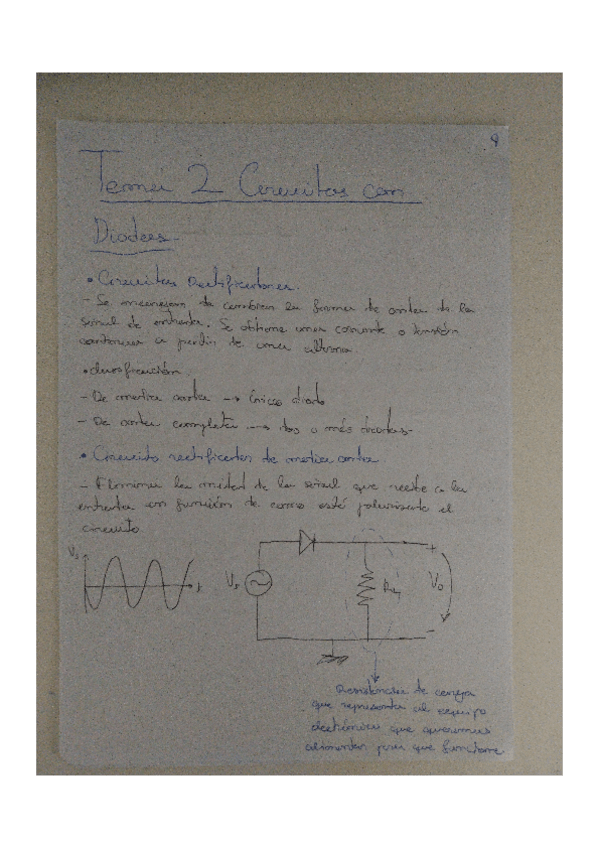 9
Tema 2 Circuitos con
Diodos
• Circuitos Rectificadores.
- Se encargan de cambiar la forma de onda de la
señal de entrada. Se obtiene una corriente o tensión
continua a partir de una alterna.
• clasificación
- De media onda → único diodo
- De onda completa → dos o más diodos
• Circuito rectificador de media onda
- Elimina la mitad de la señal que recibe a la
entrada en función de como esté polarizado el
circuito
Vs
t
Vs
+
Vo
-
Resistencia de carga
que representa al equipo
electrónico que queremos
alimentar para que funcione